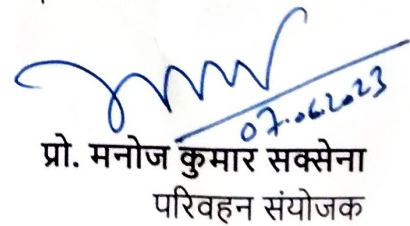 07.06.2023
प्रो. मनोज कुमार सक्सेना
परिवहन संयोजक